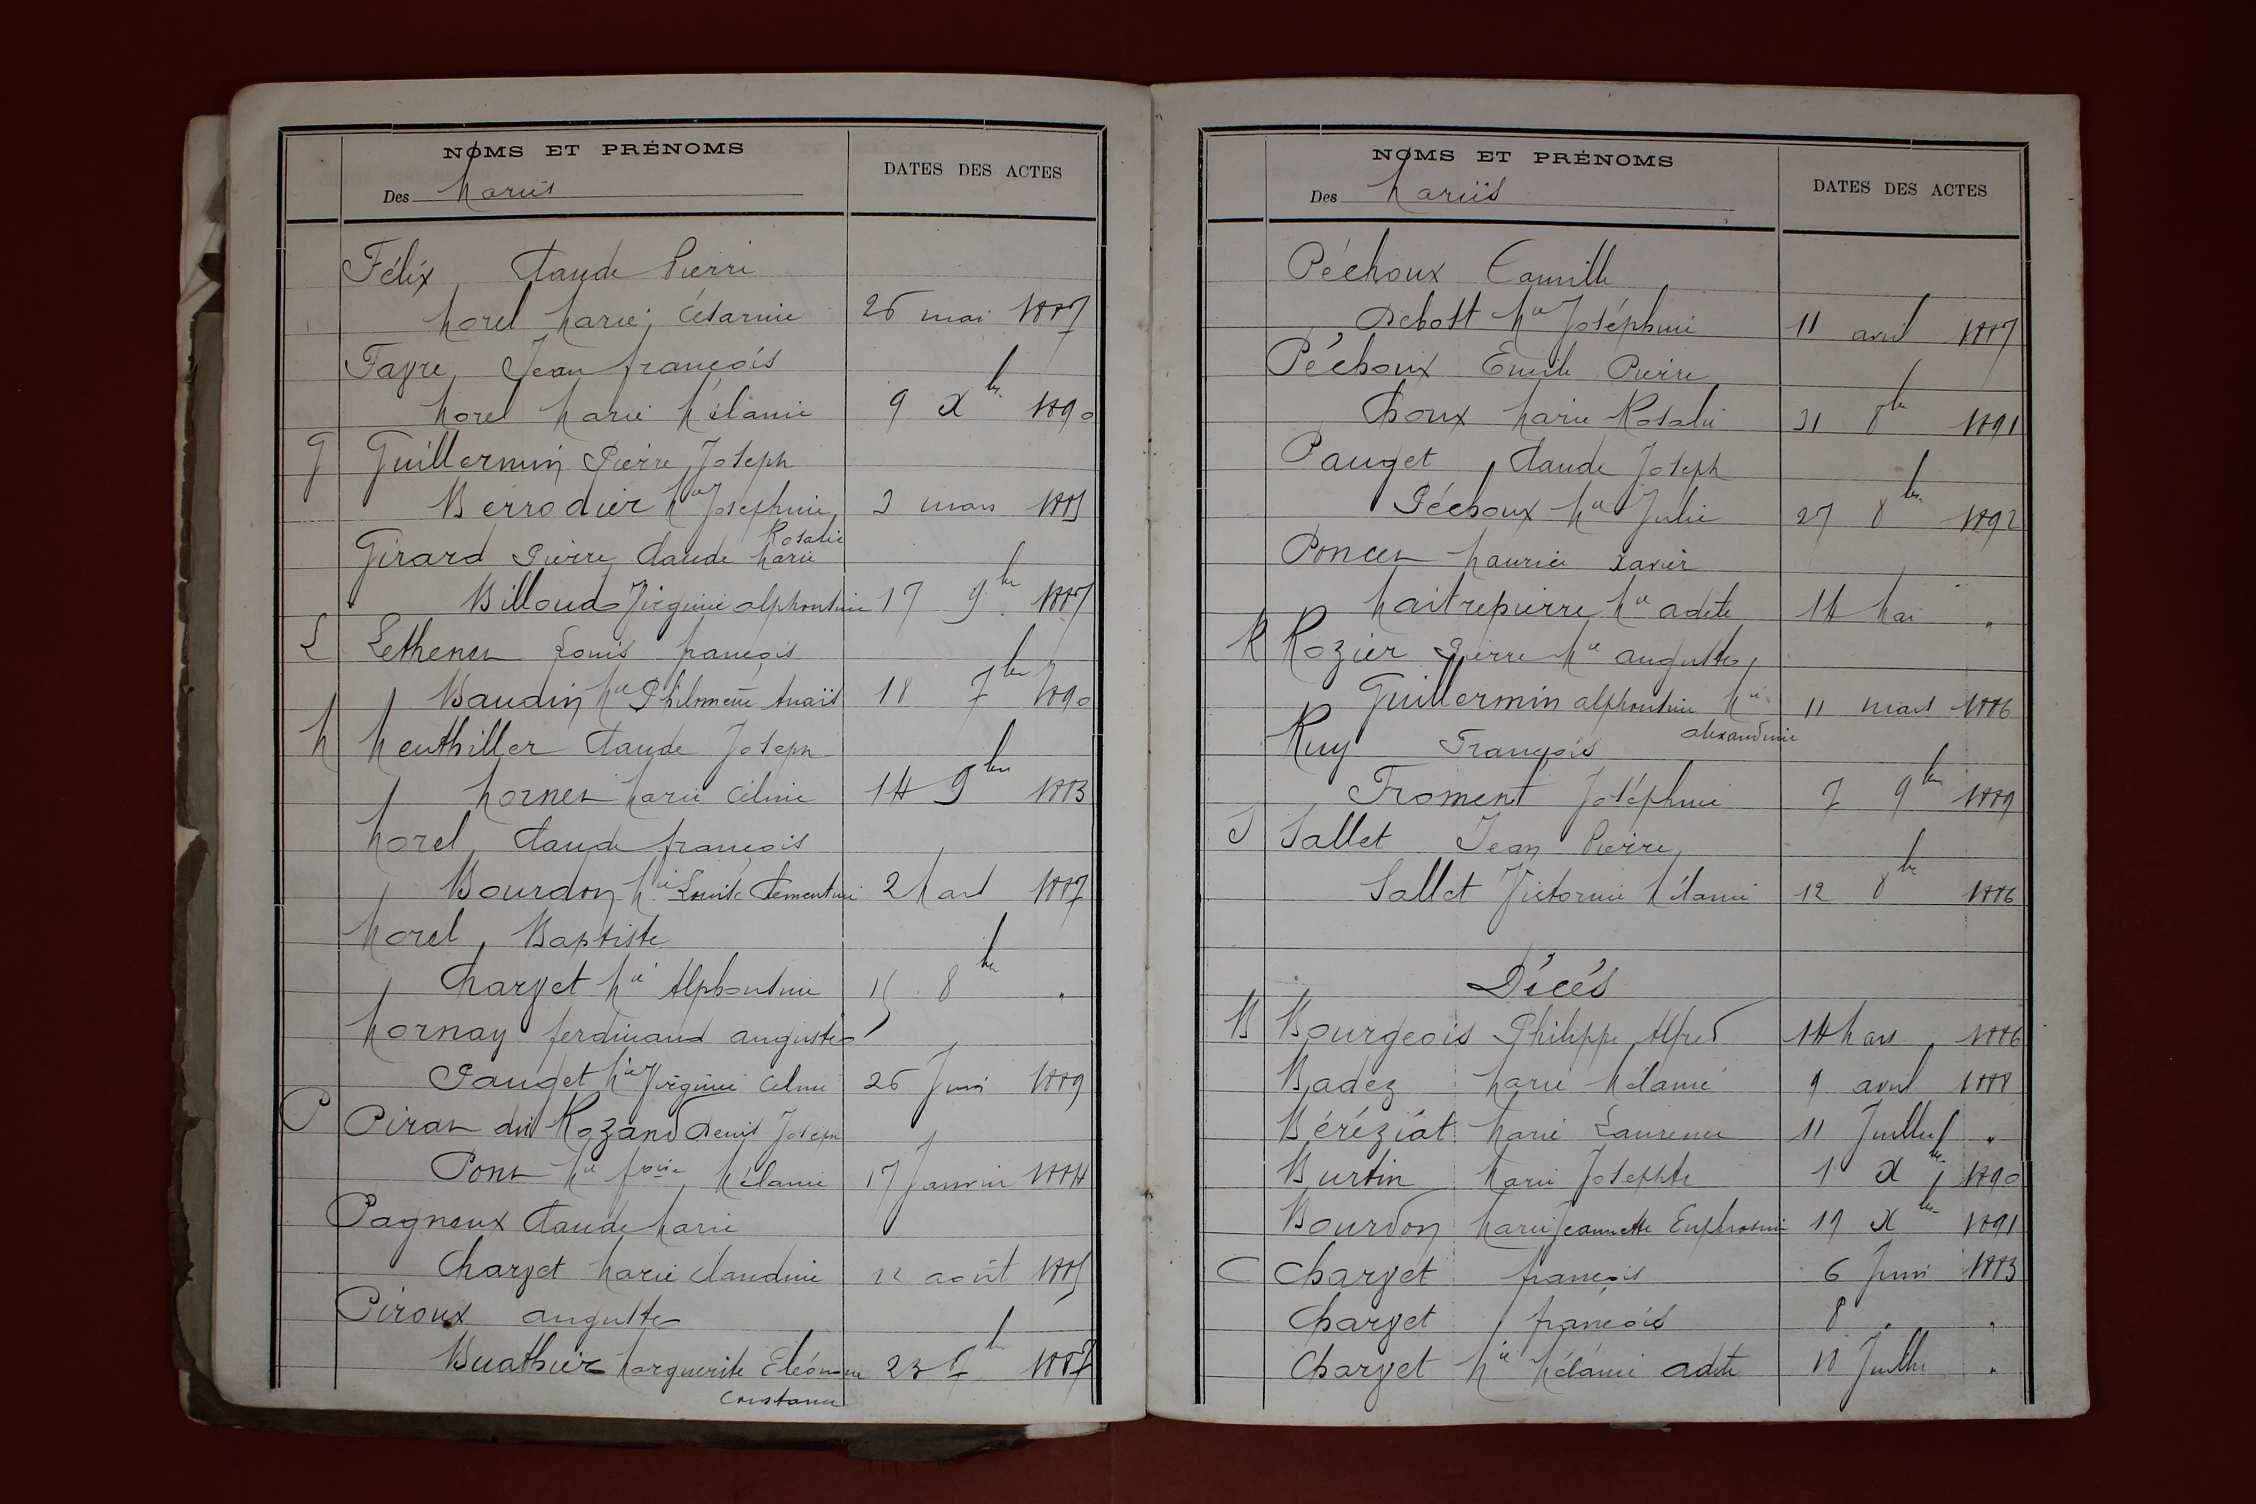 NOMS ET PRÉNOMS
Des Mariés
DATES DES ACTES
Félix Claude Pierre
Morel Marie Césarine 26 mai 1887
Fayre Jean françois
Morel Marie Mélanie 9 Xbre 1890
G Guillermin Pierre Joseph
Berrodier Mie Josephine 3 mars 1885
Rosalie
Girard Pierre Claude Marie
Billoud Virginie alphonsine 17 9bre 1887
L Lethenet Louis françois
Baudin Mie Philomène Anaïs 18 7bre 1890
M Meuthiller Claude Joseph
Mornet Marie Céline 14 9bre 1883
Morel Claude françois
Bourdon Mie Louise Clementine 2 Mars 1887
Morel Baptiste
Charvet Mie Alphonsine 15 8bre "
Mornay ferdinand auguste
Pauget Mie Virginie Celine 26 Juin 1889
P Pirat dit Rozand Denis Joseph
Pont Mie fçoise Mélanie 17 Janvier 1884
Pagneux Claude Marie
Charvet Marie Claudine 22 août 1885
Piroux auguste
Buathier Marguerite Eléonore 23 7bre 1887
Constance
NOMS ET PRÉNOMS
Des Mariés
DATES DES ACTES
Péchoux Camille
Debost Mie Joséphine 11 avril 1887
Péchoux Emile Pierre
Choux Marie Rosalie 31 8bre 1891
Pauget Claude Joseph
Péchoux Mie Julie 27 8bre 1892
Poncet Maurice Xavier
Maitrepierre Mie adele 14 Mai "
R Rozier Pierre Mie auguste
Guillermin alphonsine Mie 11 mars 1886
alexandrine
Ruy François
Froment Joséphine 7 9bre 1889
S Sallet Jean Pierre
Sallet Victorine Mélanie 12 8bre 1886
Décés
B Bourgeois Philippe Alfred 14 Mars 1886
Badez Marie Mélanie 9 avril 1888
Béréziat Marie Laurence 11 Juillet "
Burtin Marie Josephte 1 Xbre 1890
Bourdon Marie Jeannette Euphrosine 19 Xbre 1891
C Charvet françois 6 Juin 1883
Charvet françois 8 " "
Charvet Mie Mélanie adele 18 Juillet "